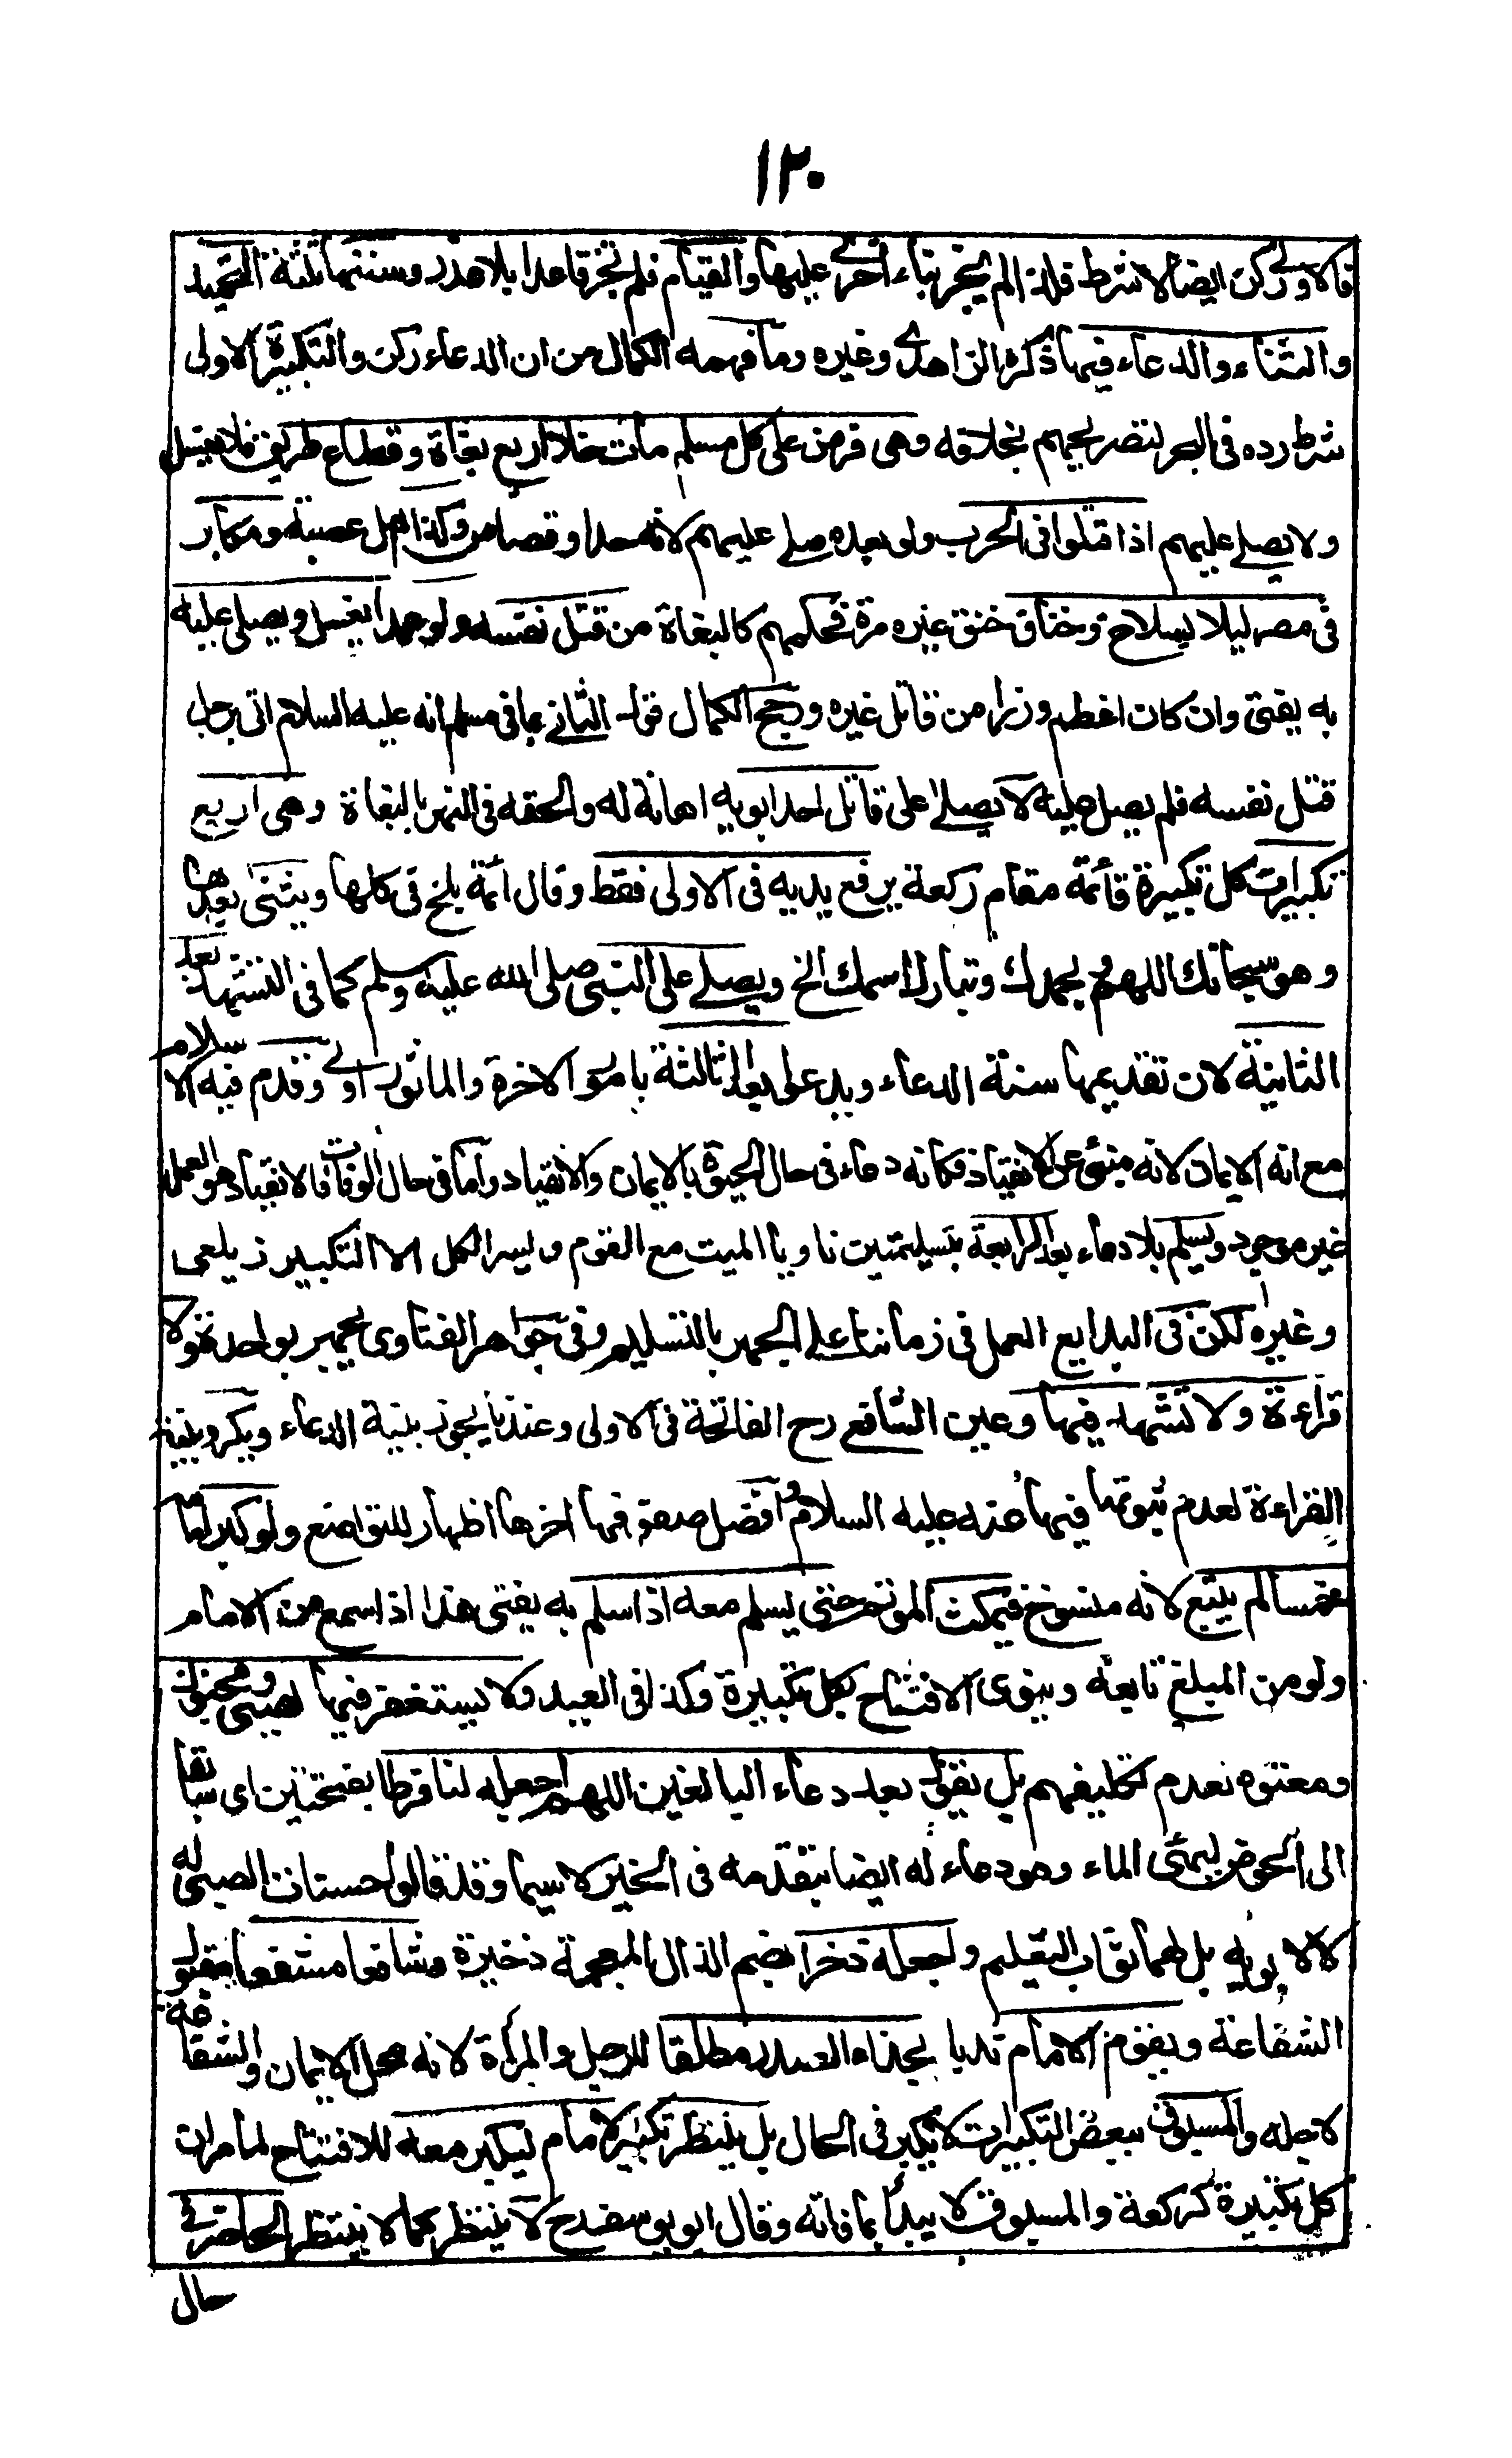 ١٢٠
فالاولى ركن ايضا لا شرط فلذا لم يجز بناء اخرى عليها والقيام فلم تجز قاعدا بلا عذر وسننها ثلثة التحميد
والثناء والدعاء فيها ذكره الزاهدى وغيره وما فهمه الكمال من ان الدعاء ركن والتكبيرة الاولى
شرط رده فى البحر لتصريحهم بخلافه وهى فرض على كل مسلم مات خلا اربع بغاة وقطاع طريق فلا يغسل
ولا يصلے عليهم اذا قتلوا فى الحرب ولو بعده صلے عليهم لانه حدا وقصاص وكذا اهل عصبة ومكابر
فى مصر ليلا بسلاح وخناق خنق غيره مرة فحكمهم كالبغاة من قتل نفسه ولو عمدا يغسل ويصلى عليه
به يفتى وان كان اعظم وزرا من قاتل غيره ورجح الكمال قول الثانے بما فى مسلم انه عليه السلام اتى برجل
قتل نفسه فلم يصل عليه لا يصلے على قاتل احد ابويه اهانة له والحقه فى النهر بالبغاة وهى اربع
تكبيرات كل تكبيرة قائمة مقام ركعة يرفع يديه فى الاولى فقط وقال ائمة بلخ فى كلها ويثنى بعدها
وهو سبحانك اللهم وبحمدك وتبارك اسمك الخ ويصلے على النبى صلى الله عليه وسلم كما فى التشهد بعد
الثانية لان تقديمها سنة الدعاء ويدعو بعد الثالثة بامور الاخرة والماثور اولے وقدم فيه الاسلام
مع انه الايمان لانه منبئ عن الانقياد فكانه دعاء فى حال الحيوة بالايمان والانقياد واما فى حال الوفات فالانقياد هو العمل
غير موجود ويسلم بلا دعاء بعد الرابعة بتسليمتين ناويا الميت مع القوم ويسر الكل الا التكبير زيلعى
وغيره لكن فى البدايع العمل فى زماننا على الجهر بالتسليم وفى جواهر الفتاوى يجهر بواحدة ولا
قراءة ولا تشهد فيها وعين الشافع رح الفاتحة فى الاولى وعندنا يجوز بنية الدعاء ويكره بنية
القراءة لعدم ثبوتها فيها عنه عليه السلام وافضل صفوفها اخرها اظهار للتواضع ولو كبر امامه
خمسا لم يتبع لانه منسوخ فيمكث الموتم حتى يسلم معه اذا سلم به يفتى هذا اذا سمع من الامام
ولو من المبلغ تابعه وينوى الافتتاح بكل تكبيرة وكذا فى العيد ولا يستغفر فيها لصبى ومجنون
ومعتوه لعدم تكليفهم بل يقول بعد دعاء البالغين اللهم اجعله لنا فرطا بفتحتين اى سابقا
الى الحوض ليهئى الماء وهو دعاء له ايضا بتقدمه فى الخير لا سيما وقد قالوا حسنات الصبى له
لا لابويه بل لهما ثواب التعليم واجعله ذخرا بضم الذال المعجمة ذخيرة وشافعا مشفعا مقبول
الشفاعة ويقوم الامام ندبا بحذاء الصدر مطلقا للرجل والمراة لانه محل الايمان والشفاعة
لاجله والمسبوق ببعض التكبيرات لا يكبر فى الحال بل ينتظر تكبير الامام ليكبر معه للافتتاح لما مر ان
كل تكبيرة كركعة والمسبوق لا يبدأ بما فاته وقال ابو يوسف رح لا ينتظر كما لا ينتظر الحاضر فے
حال